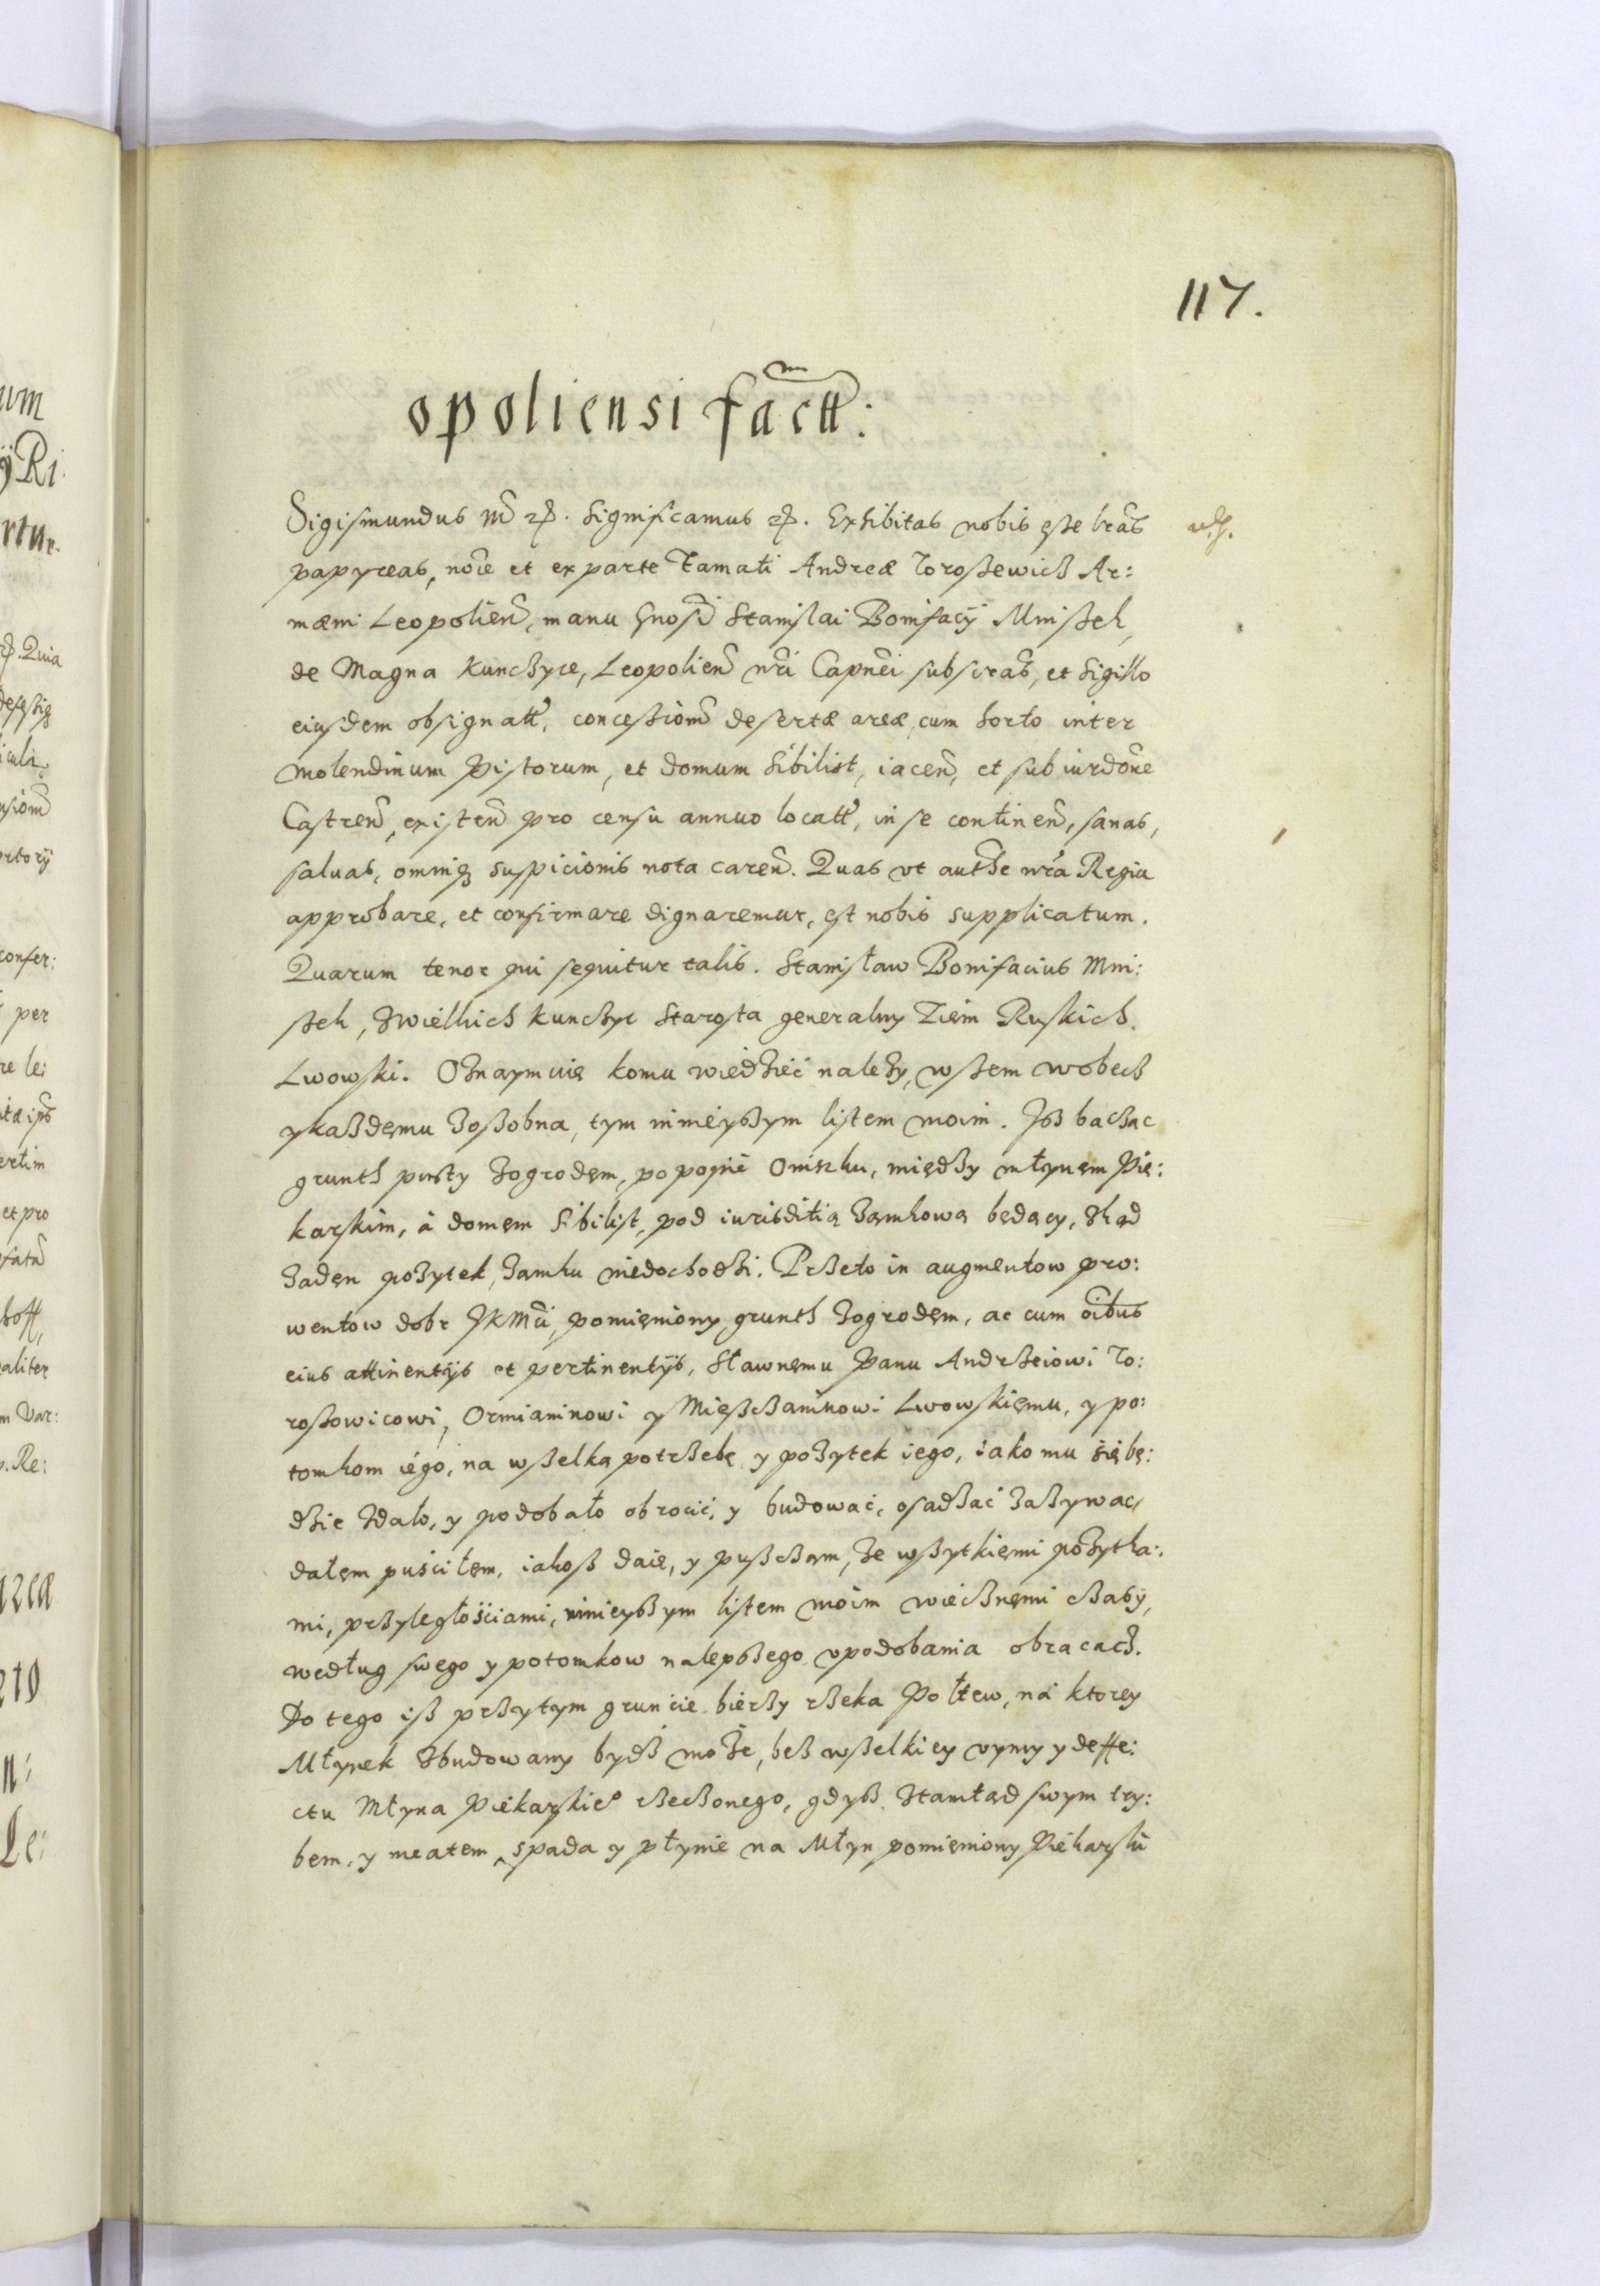 117.
opoliensi fact̃:
Sigismundus III etc. Significamus etc. Exhibitas nobis esse lrãs
papyreas, noĩe et ex parte Famati Andreæ Toroszewicz Ar:
mæni Leopolien̄, manu Gnosi Stanislai Bonifacij Mniszek,
de Magna Kunczyce, Leopolien̄ nrĩ Capnẽi subscrãs, et Sigillo
eiusdem obsignatt, concessiom̄ desertæ areæ, cum horto inter
molendinum Pistorum, et domum Sibilist, iacen̄, et sub iurdõne
Castren̄, existen̄ pro censu annuo locatt, in se continen̄, sanas,
saluas, omniq; suspicionis nota caren̄. Quas vt authe nrã Regia
approbare, et confirmare dignaremur, est nobis supplicatum.
Quarum tenor qui sequitur talis. Stanisław Bonifacius Mni:
szek, Zwielkich Kunczyc Starosta generalny Ziem Ruskich.
Lwowski. Oznaymuię komu wiedzieć należy, wszem wobech
y każdemu zosobna, tym ninieyszym listem moim. Isz bacząc
grunth pusty Zogrodem, po pojnie Oniszku, między młynem Pie:
karskim, á domem Sibilist, pod iurisditią zamkową będący, zkąd
żaden pożytek, zamku niedochodzi. Przeto in augmentow pro:
wentow dobr JKMći, pomieniony grunth Zogrodem, ac cum oĩbus
eius attinentijs et pertinentijs, Sławnemu Panu Andrzeiowi To:
roszowicowi, Ormianinowi y Mieszczaninowi Lwowskiemu, y po:
tomkom iego, na wszelką potrzebę y pożytek iego, iako mu się bę:
dzie zdało, y podobało obrocić, y budować, osadzać zażywać,
dałem puścilem, iakosz daię, y puszczam, ze wszytkiemi pożytka:
mi, przyległościami, ninieyszym listem moim wiecznemi czasy,
według swego y potomkow nalepszego vpodobania obracach.
Do tego isz przytym gruncie bierzy rzeka Połtew, na ktorey
Młynek zbudowany bydz może, bez wszelkiey vymy y deffe:
ctu Młyna Piekarskie° rzeczonego, gdysz ztamtąd swym try:
bem, y meatem, spada y płynie na Młyn pomieniony Piekarski